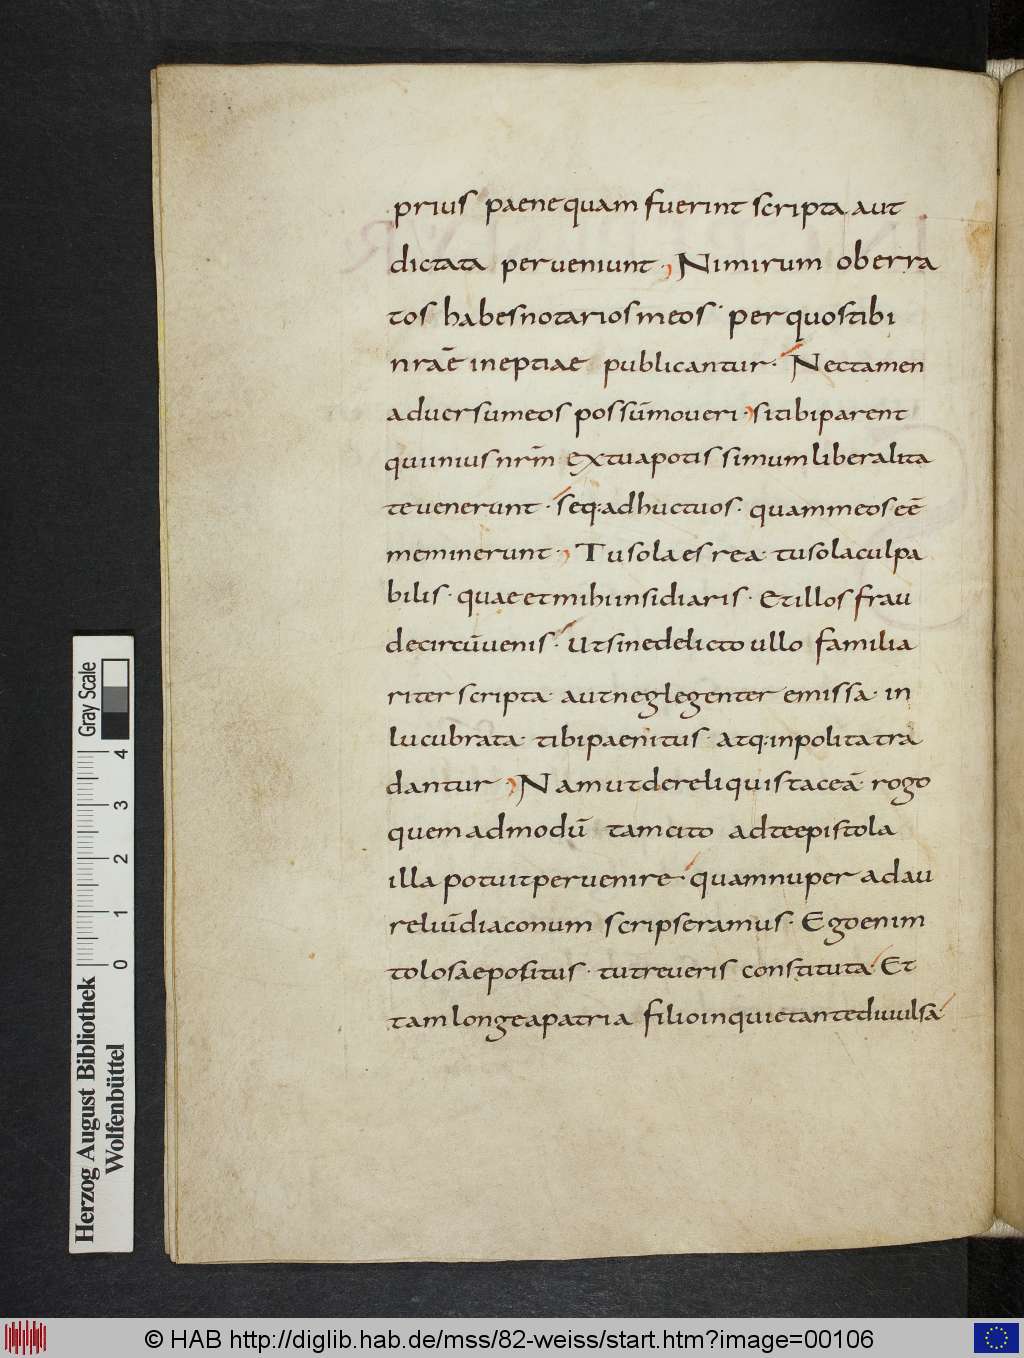 prius paene quam fuerint scripta aut
dictata perveniunt. Nimirum oberra
tos habes notarios meos. per quos tibi
nrãe ineptiae publicantur. Nec tamen
adversum eos possũ moveri. si tibi parent
qui inius nrm̃ ex tua potissimum liberalita
te venerunt. seq: adhuc tuos. quam meos eẽ
meminerunt. Tu sola es rea. tu sola culpa
bilis. quae et mihi insidiaris. Et illos frau
de circũvenis. Ut sine delicto ullo familia
riter scripta. aut neglegenter emissa. in
lucubrata. tibi paenitus. atq: inpolita tra
dantur. Nam ut de reliquis taceã. rogo
quem ad modũ tam cito ad te epistola
illa potuit pervenire. quam nuper ad au
reliũ diaconum scripseramus. Ego enim
tolosae positus. tu treveris constituta. Et
tam longe a patria filio inquietante divulsa.
Gray Scale
4
3
2
1
0
Herzog August Bibliothek
Wolfenbüttel
© HAB http://diglib.hab.de/mss/82-weiss/start.htm?image=00106